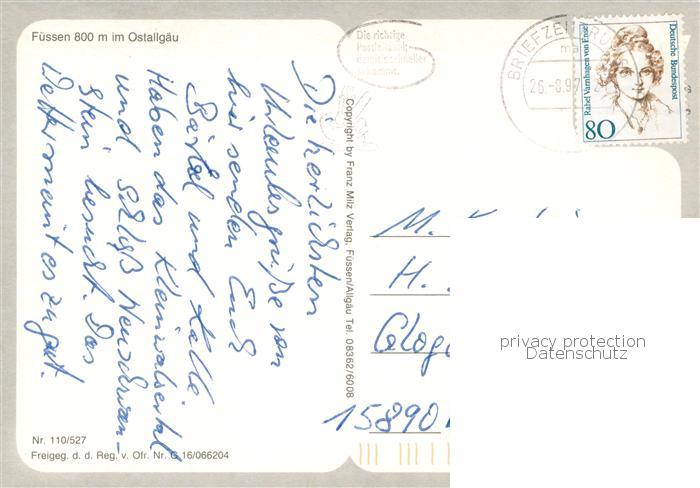 Füssen 800 m im Ostallgäu
Die herzlichsten
Urlaubsgrüße von
hier senden Euch
Bärbel und Kalle.
Haben das Kleinwalsertal
und Schloß Neuschwan-
stein besucht. Das
Wetter meint es zu gut.
Nr. 110/527
Freigeg. d. d. Reg. v. Ofr. Nr. G 16/066204
Copyright by Franz Milz Verlag, Füssen/Allgäu Tel. 08362/6008
Die richtige
Postleitzahl;
damit's schneller
ankommt.
BRIEFZENTRUM
26.-8.97
Rahel Varnhagen von Ense
Deutsche Bundespost
80
M.
H.
15890
privacy protection
Datenschutz